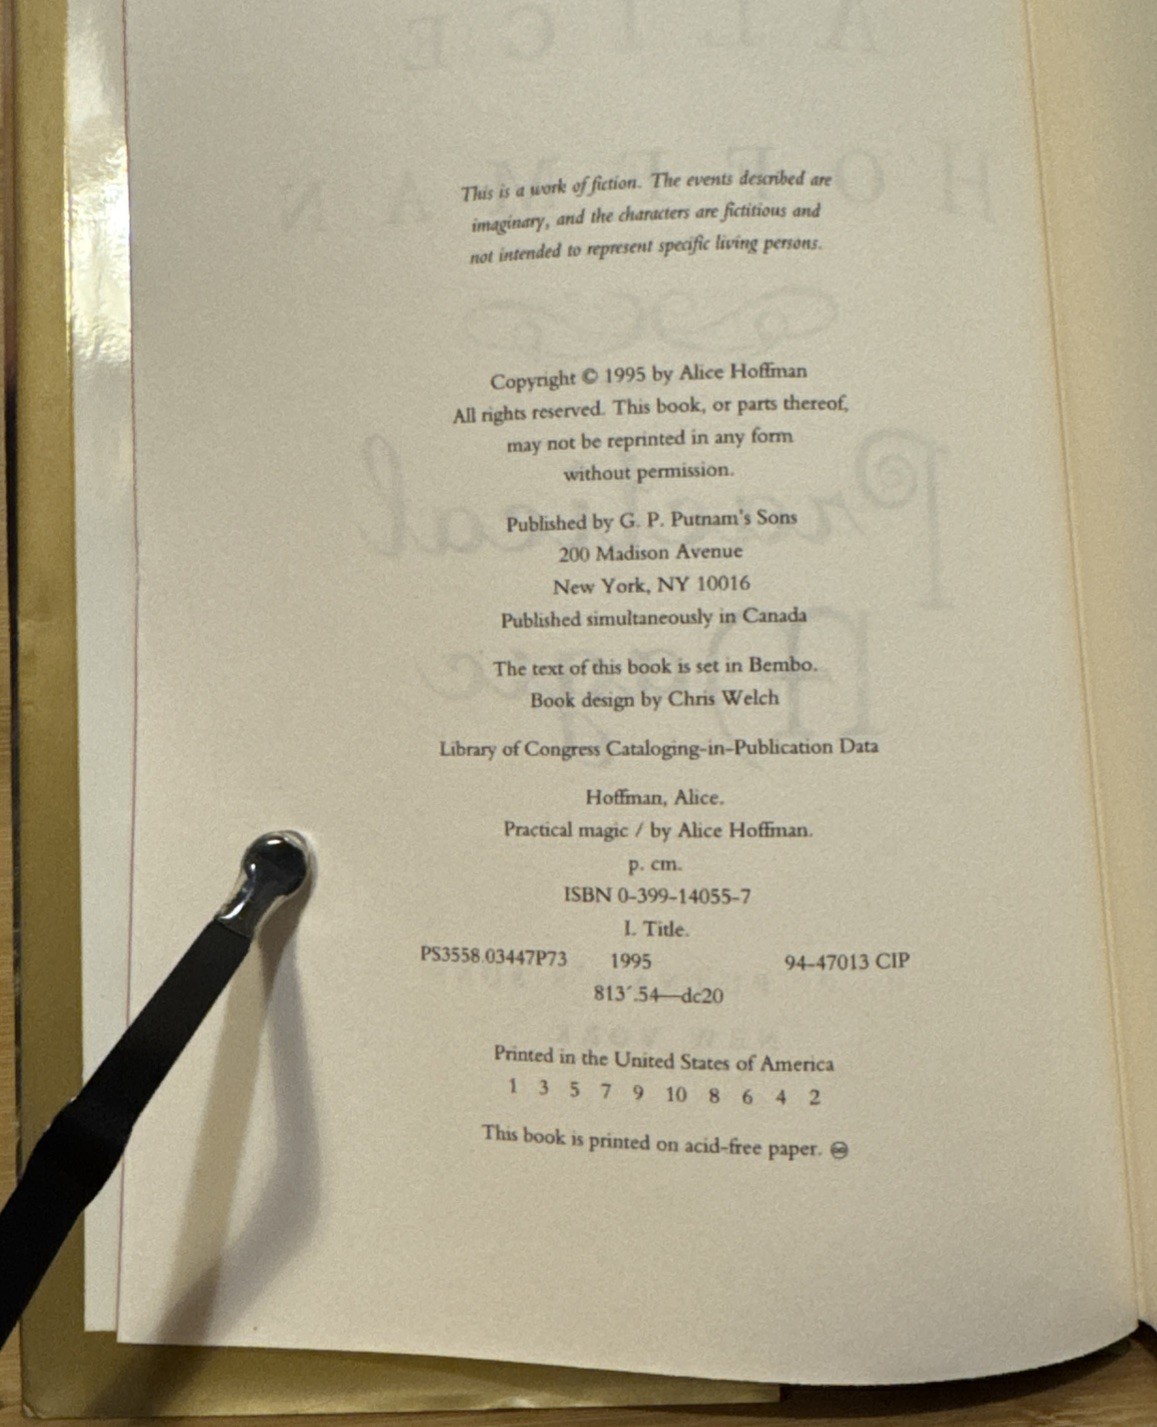 This is a work of fiction. The events described are
imaginary, and the characters are fictitious and
not intended to represent specific living persons.
Copyright © 1995 by Alice Hoffman
All rights reserved. This book, or parts thereof,
may not be reprinted in any form
without permission.
Published by G. P. Putnam's Sons
200 Madison Avenue
New York, NY 10016
Published simultaneously in Canada
The text of this book is set in Bembo.
Book design by Chris Welch
Library of Congress Cataloging-in-Publication Data
Hoffman, Alice.
Practical magic / by Alice Hoffman.
p. cm.
ISBN 0-399-14055-7
I. Title.
PS3558.03447P73 1995 94-47013 CIP
813´.54—dc20
Printed in the United States of America
1 3 5 7 9 10 8 6 4 2
This book is printed on acid-free paper. ♾